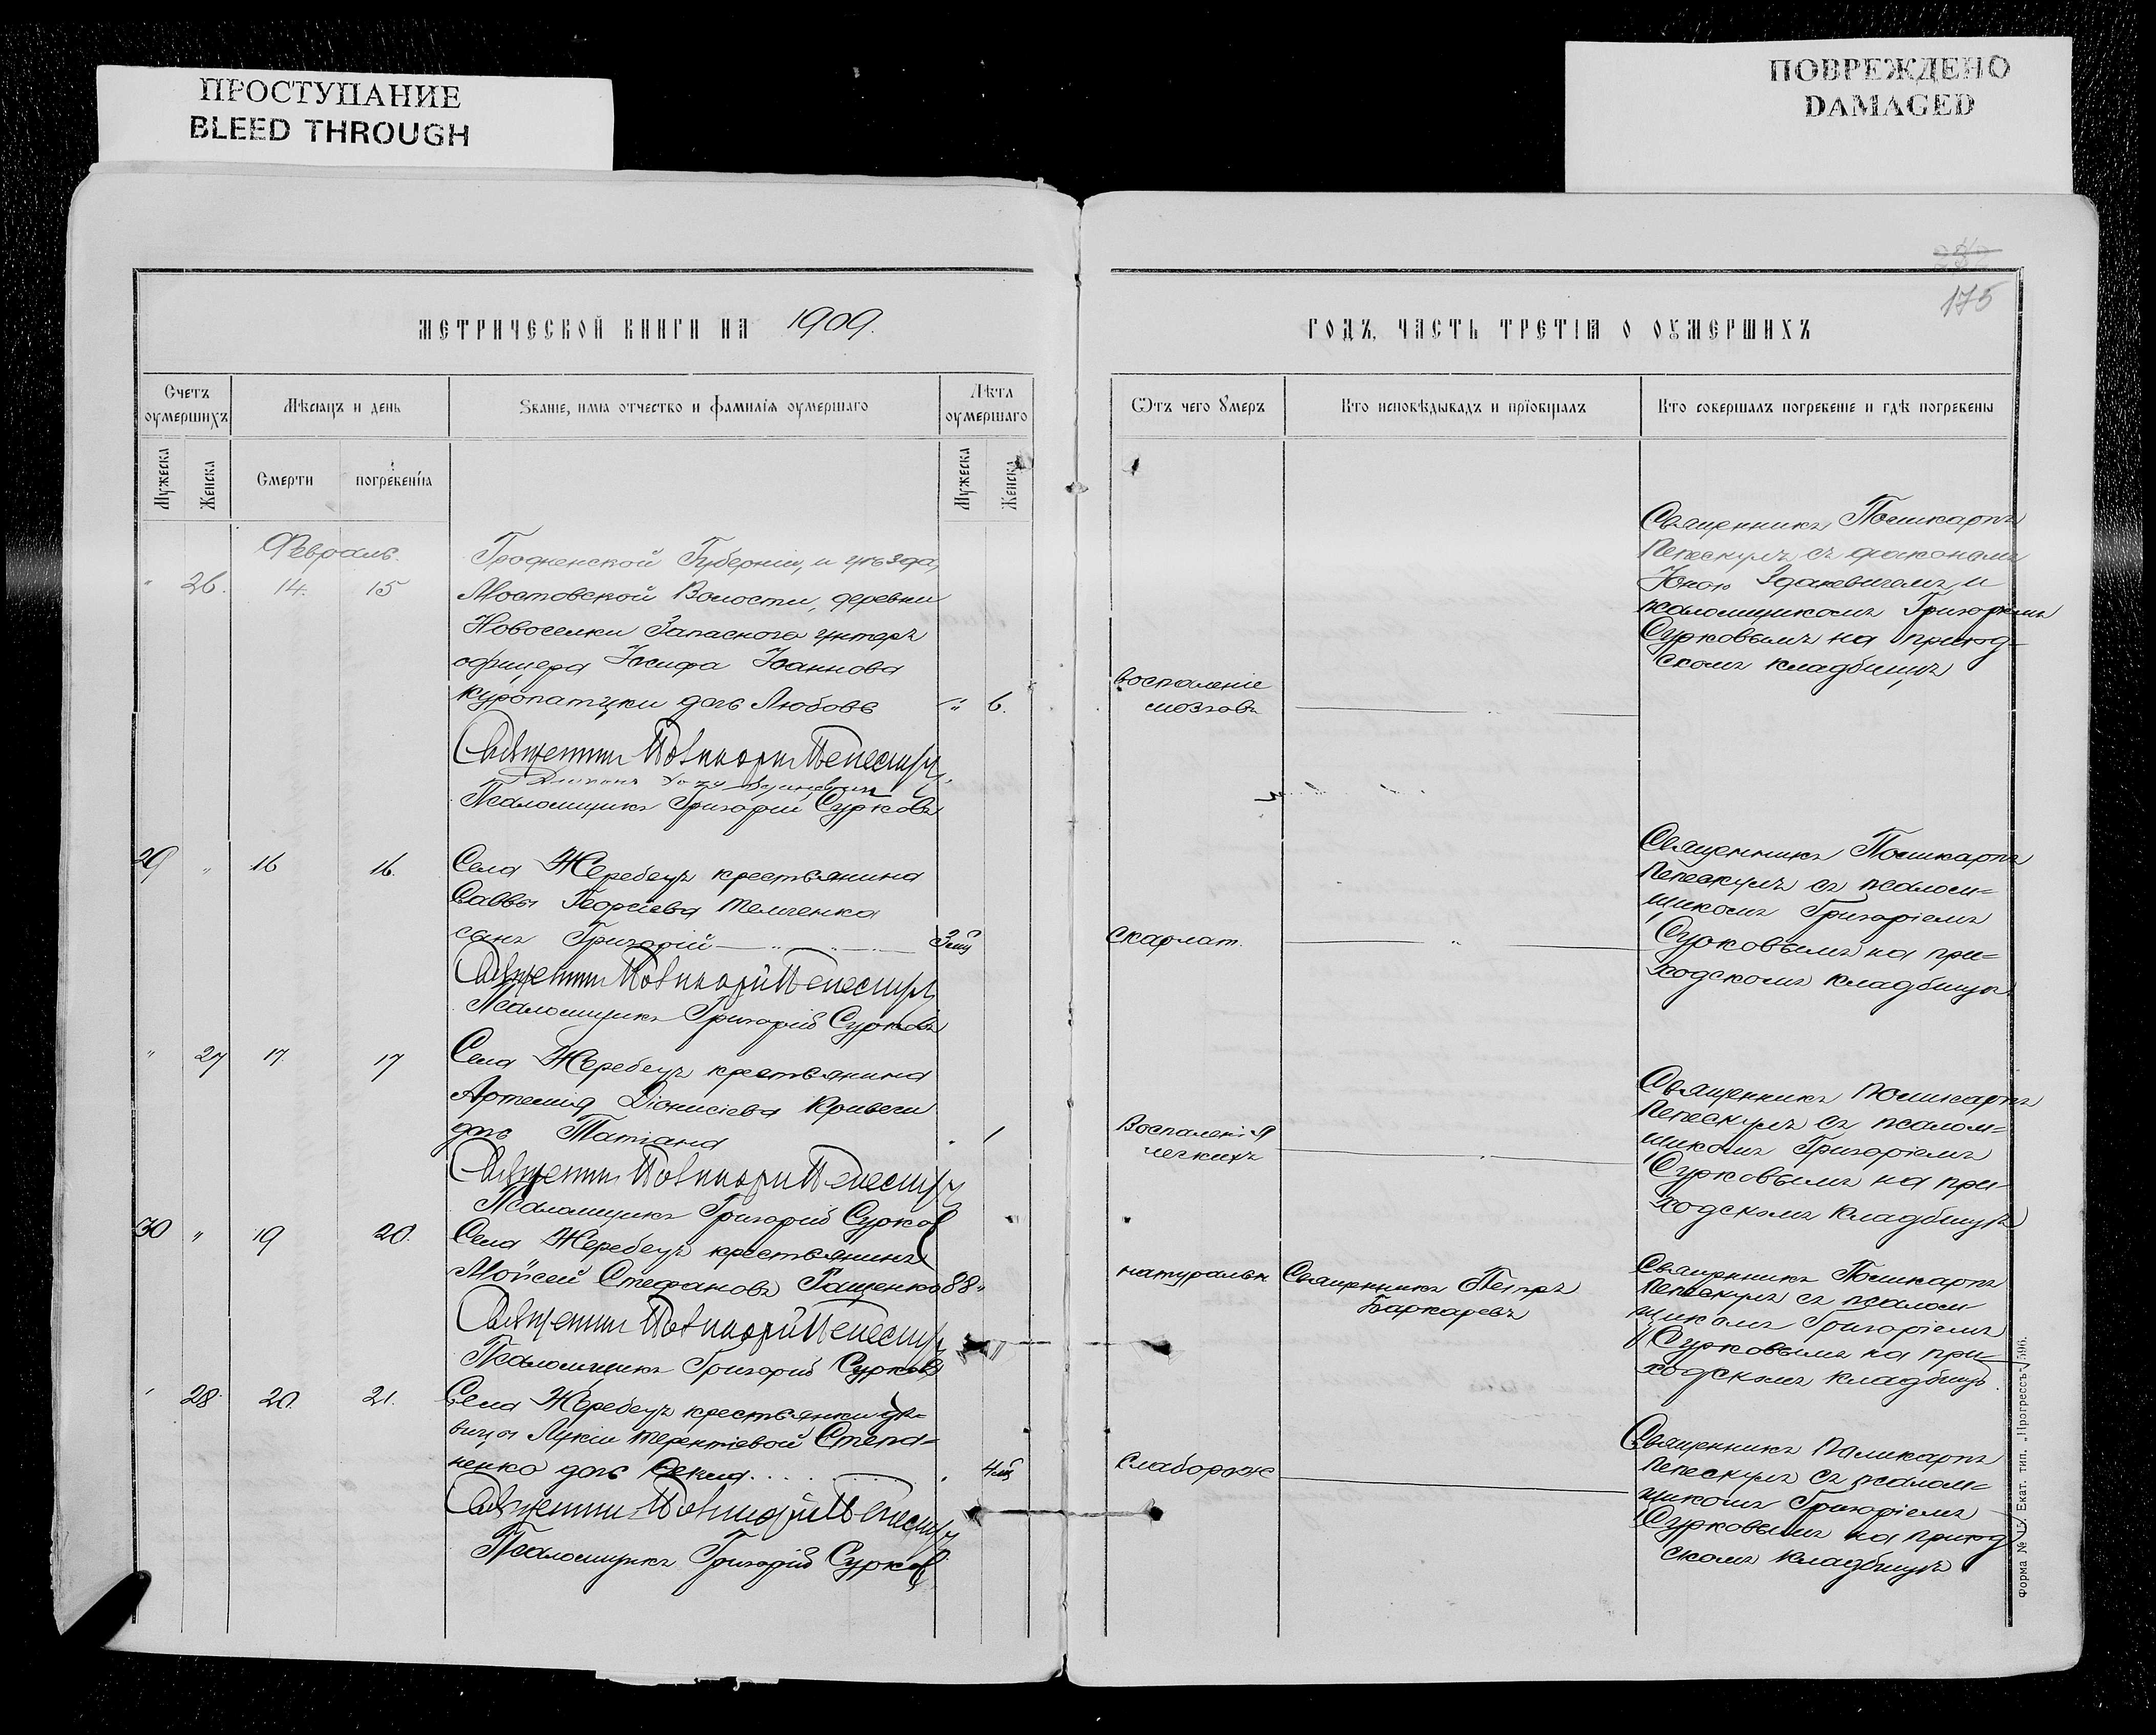 ПРОСТУПАНИЕ
BLEED THROUGH
ПОВРЕЖДЕНО
DAMAGED
175
МЕТРИЧЕСКОЙ КНИГИ НА 1909.
ГОДЪ, ЧАСТЬ ТРЕТІѦ О ОУМЕРШИХЪ
Счетъ оумершихъ
Мѣсѧцъ и день
Званіе, имѧ отчество и фамиліѧ оумершаго
Лѣта оумершаго
Мужеска
Женска
Смерти
погребеніѧ
Мужеска
Женска
Ѿтъ чего Умеръ
Кто исповѣдывалъ и прїобщалъ
Кто совершалъ погребеніе и гдѣ погребены
Февраль.
" 26. 14. 15
Гродненской Губерніи, и уѣзда,
Мостовской Волости, деревни
Новоселки Запаснога унтеръ
офицера Іосифа Іоаннова
Куропатцки дочь Любовь " 6.
Священник Поликарп Пепескул
Псаломщикъ Григорій Сурковъ
воспаленіе
мозговъ
Священникъ Поликарпъ
Пепескулъ съ діакономъ
Юною Здакевичемъ и
псаломщикомъ Григоріемъ
Сурковымъ на приход-
скомъ кладбищѣ
29 " 16 16.
Села Жеребецъ крестьянина
Саввы Георгіева Темченка
сынъ Григорій 3 мц
Священник Поликарп Пепескул
Псаломщикъ Григорій Сурковъ
скарлат.
Священникъ Поликарпъ
Пепескулъ съ псалом=
щикомъ Григоріемъ
Сурковымъ на при=
ходскомъ кладбищѣ
" 27 17 17
Села Жеребецъ крестьянина
Артемия Діонисіева Кривеги
дочь Татіана 1
Священник Поликарп Пепескул
Псаломщикъ Григорій Сурков
Воспаленія
легкихъ
Священникъ Поликарпъ
Пепескулъ съ псалом=
щикомъ Григоріемъ
Сурковымъ на при=
ходскомъ кладбищѣ
30 " 19 20.
Села Жеребецъ крестьянинъ
Мойсей Стефановъ Гащенко 88 "
Священник Поликарп Пепескул
Псаломщикъ Григорій Сурков
натуральн
Священникъ Петръ
Баркаревъ
Священникъ Поликарпъ
Пепескулъ съ псалом
щикомъ Григоріемъ
Сурковымъ на при-
ходскомъ кладбищѣ.
" 28 20. 21.
Села Жеребецъ крестьянки дѣ=
вицы Лукіи Терентіевой Степа=
ненко дочь 4 мц
Священник Поликарп Пепескул
Псаломщикъ Григорій Сурков
Слаборож
Священникъ Паликарпъ
Пепескулъ съ псалом=
щикомъ Григоріемъ
Сурковымъ на приход
скомъ кладбищѣ
Форма № 15. Екат. тип. „Прогрессъ" 596.